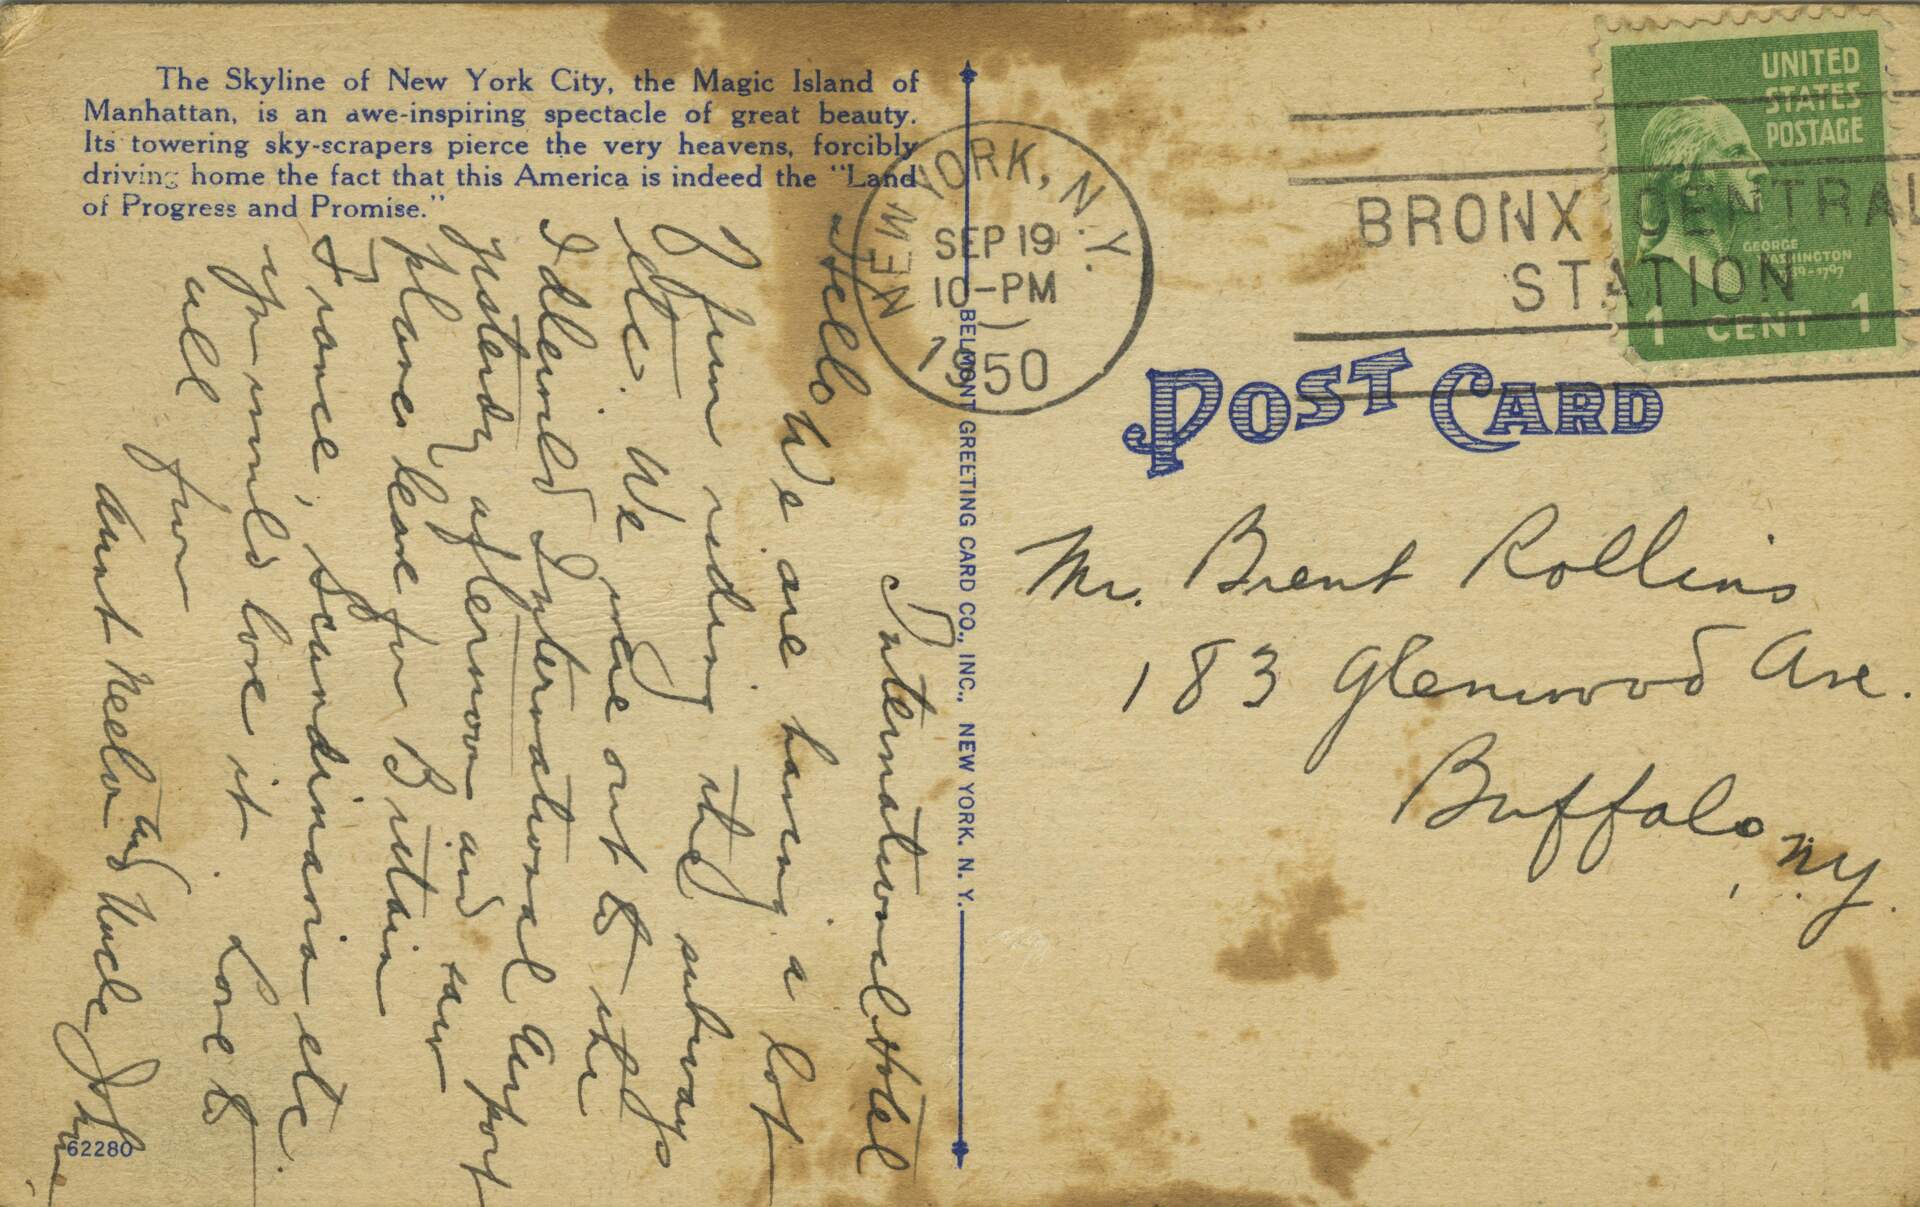 The Skyline of New York City, the Magic Island of
Manhattan, is an awe-inspiring spectacle of great beauty.
Its towering sky-scrapers pierce the very heavens, forcibly
driving home the fact that this America is indeed the "Land
of Progress and Promise."
International Hotel
Hello We are having a lot
of fun riding the subways
etc. We were out to the
Idlewild International Airport
yesterday afternoon and saw
planes leave for Britain
France, Scandinavia etc.
You would love it. Love to
all from
Aunt and Uncle John
62280
BELMONT GREETING CARD CO., INC., NEW YORK. N. Y.
NEW YORK, N.Y.
SEP 19
10-PM
1950
BRONX CENTRAL
STATION
UNITED
STATES
POSTAGE
GEORGE
WASHINGTON
1789-1797
1 CENT 1
POST CARD
Mr. Brent Rollins
183 Glenwood Ave.
Buffalo, N.Y.